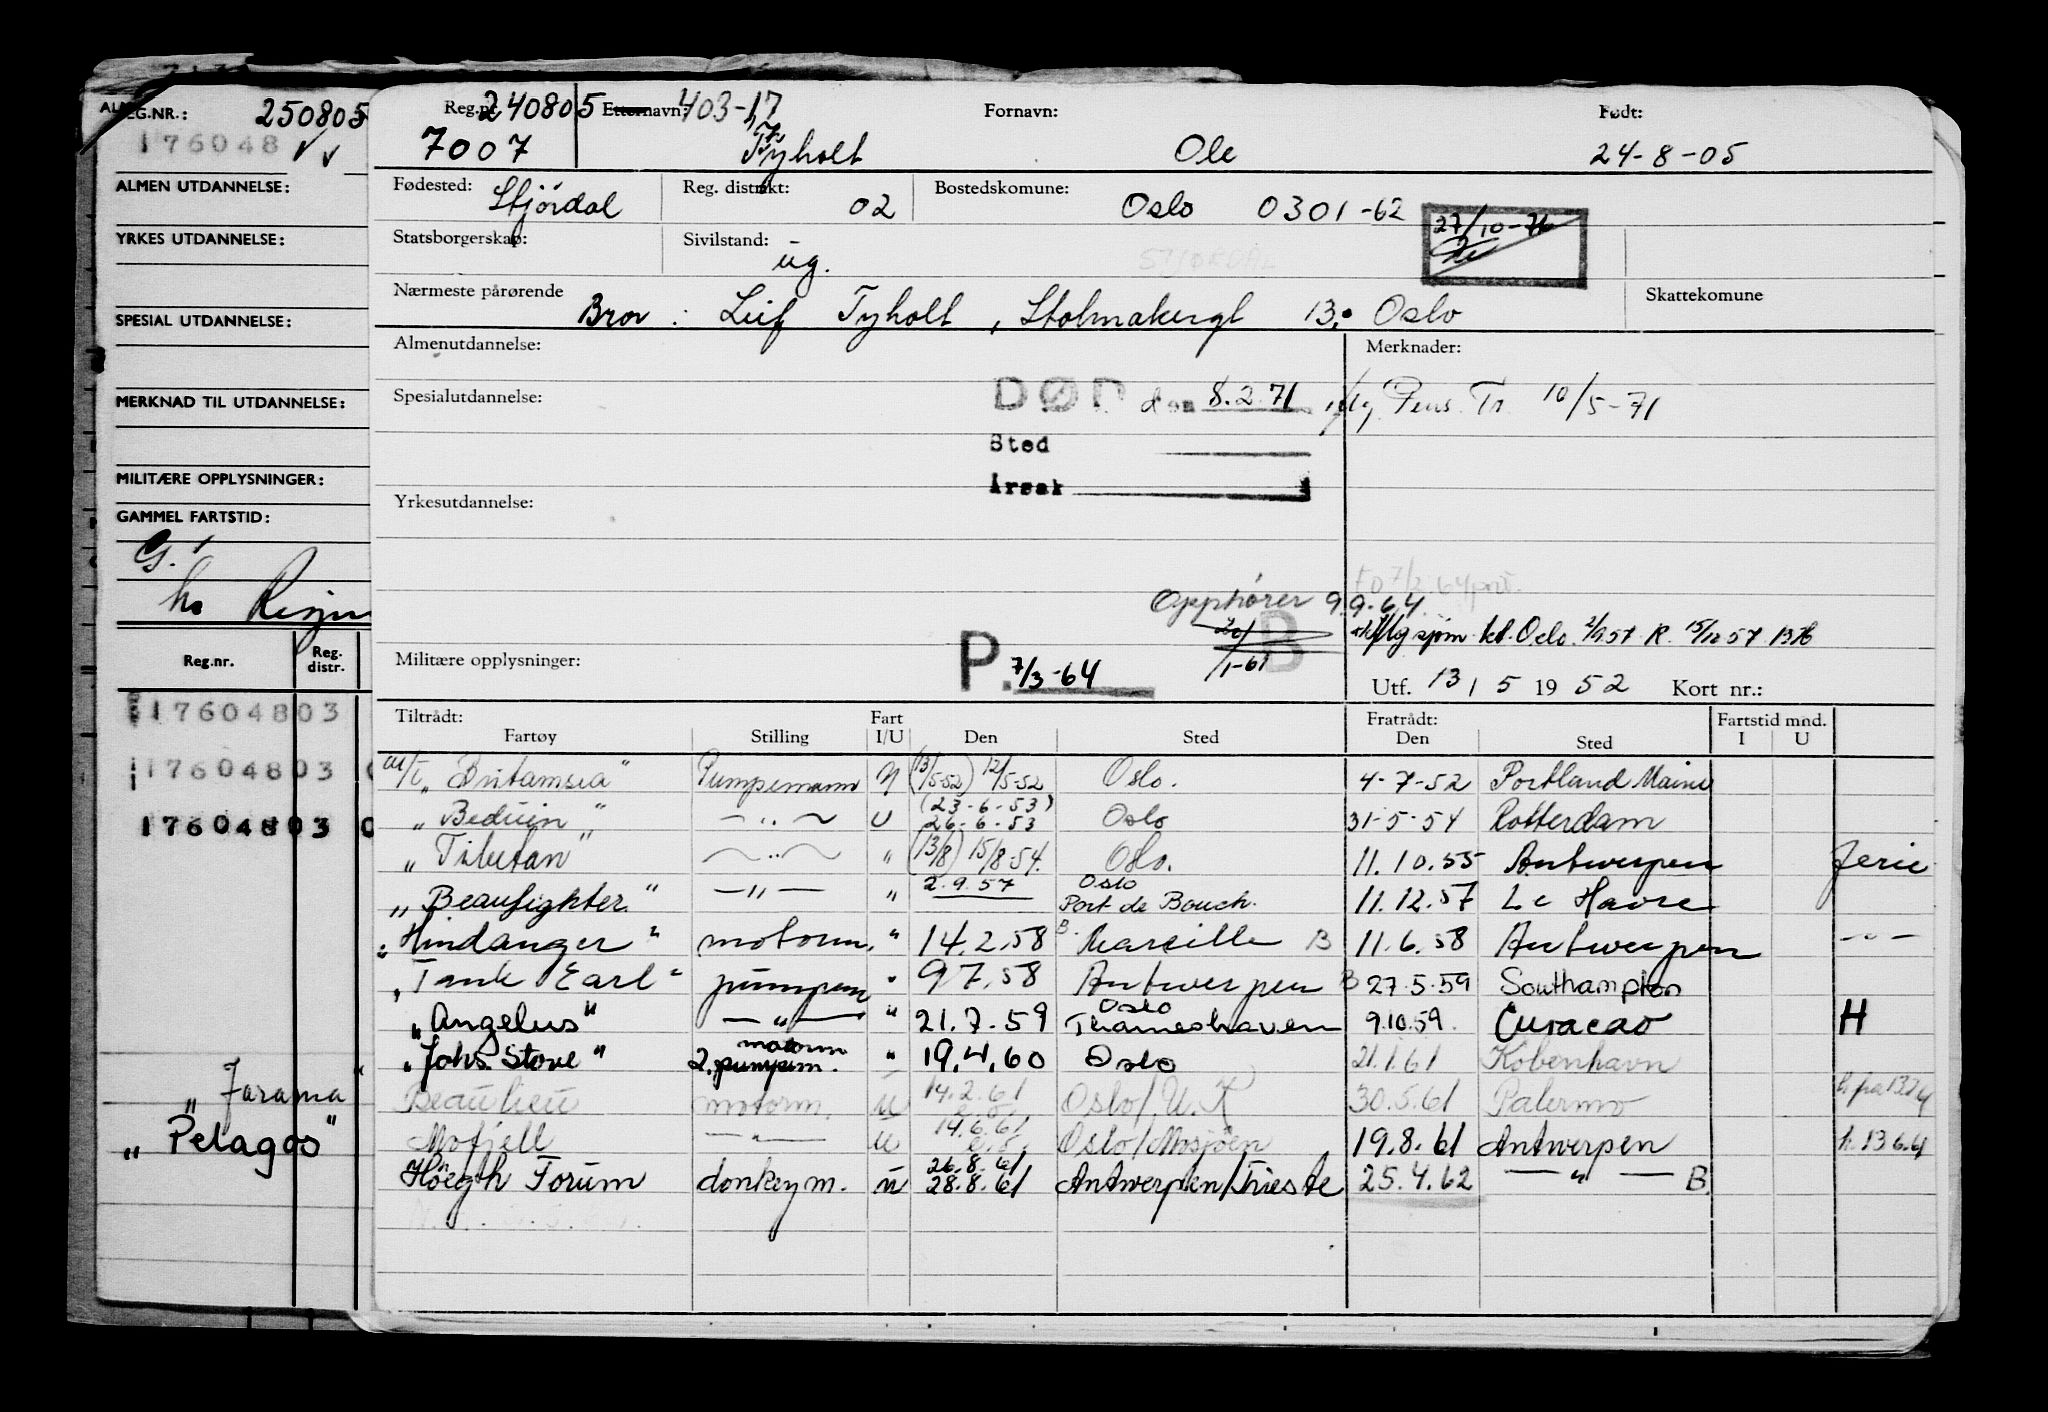 REG.NR.: 250805
176048
ALMEN UTDANNELSE:
YRKES UTDANNELSE:
SPESIAL UTDANNELSE:
MERKNAD TIL UTDANNELSE:
MILITÆRE OPPLYSNINGER:
GAMMEL FARTSTID:
G.
Reg.nr. Reg. distr.
17604803
17604803
17604803
"Jarama"
"Pelagos"
Reg.nr. 240805 Etternavn: 403-17 Fornavn: Født:
7007 Tyholt Ole 24-8-05
Fødested: Stjördal Reg. distrikt: 02 Bostedskomune: Oslo 0301-62
27/10-76
Statsborgerskap: Sivilstand: ug.
STJØRDAL
Nærmeste pårørende Bror: Leif Tyholt, Stolmakergt 13, Oslo Skattekomune
Almenutdannelse: Merknader:
Spesialutdannelse: DØD den 8.2.71 iflg. Pens. Tr. 10/5-71
Sted
Årsak
Yrkesutdannelse:
Opphörer 9.9.64.
20/1-61 B
iflg sjøm. kt. Oslo 2/9 57 R. 15/12 57 1376
Militære opplysninger: P. 7/3-64
Utf. 13/5 1952 Kort nr.:
Tiltrådt: Fart Fratrådt: Fartstid mnd.
Fartøy Stilling I/U Den Sted Den Sted I U
m/t "Britamsea" Pumpemann U (13/5-52) 12/5-52 Oslo. 4-7-52 Portland Maine
"Beduin" — " — U (23-6-53) 26-6-53 Oslo 31-5-54 Rotterdam
"Tibetan" — " — " (13/8) 15/8-54. Oslo. 11.10.55 Antwerpen Ferie
"Beaufighter" — " — " 2.9.57 Oslo Port de Bouch. 11.12.57 Le Havre
"Hindanger" motorm. " 14.2.58 B Marseille B 11.6.58 Antwerpen — " —
"Tank Earl" pumpem " 9.7.58 Antwerpen B 27.5.59 Southampton
"Angelus" — " — " 21.7.59 Oslo Thameshaven 9.10.59. Curacao H
"Johs. Stove" motorm 2. pumpem. " 19.4.60 Oslo 21.1.61 København
Beaulieu motorm. u 14.2.61 Oslo/U.K 30.5.61 Palermo
Mofjell — " — u 14.6.61 Oslo/Mosjøen 19.8.61 Antwerpen h. 13 6.61
Höegh Forum donkeym. u 26.8.61 28.8.61 Antwerpen/Trieste 25.4.62 — " — B.